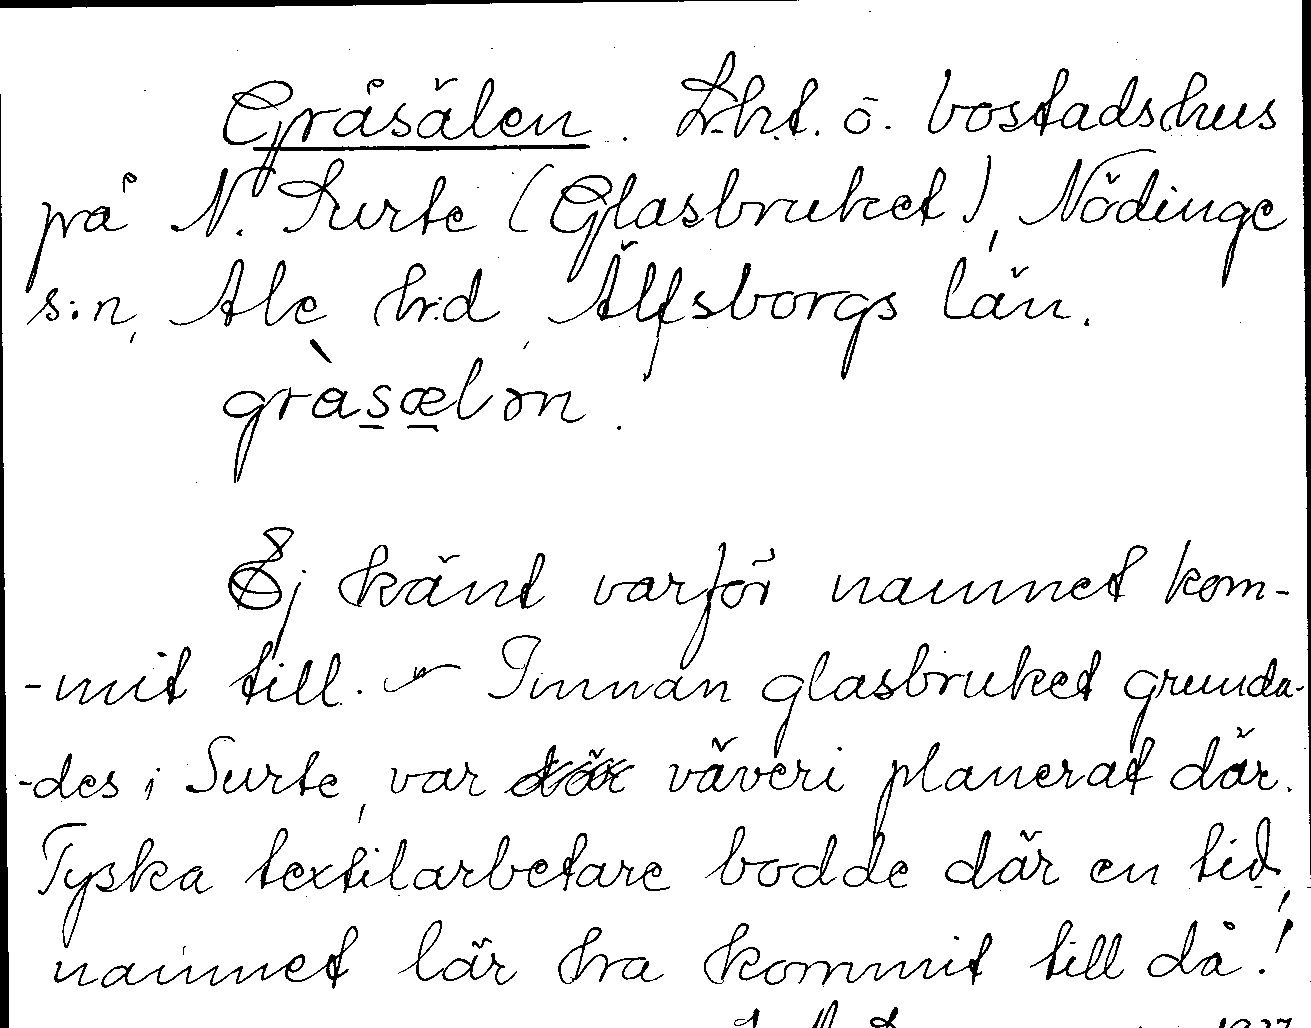 Gråsälen. Lht. o. bostadshus
på N. Surte (Glasbruket), Nödinge
s:n, Ale hrd, Älfsborgs län.
gràsælən.
Ej känt varför namnet kom-
-mit till. - Innan glasbruket grunda-
-des i Surte, var väveri planerat där.
Tyska textilarbetare bodde där en tid,
namnet lär ha kommit till då!